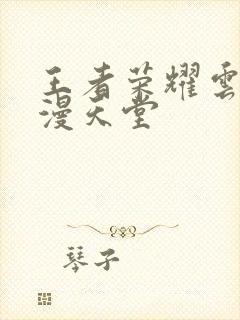 王者荣耀雲
漫天堂
琴子